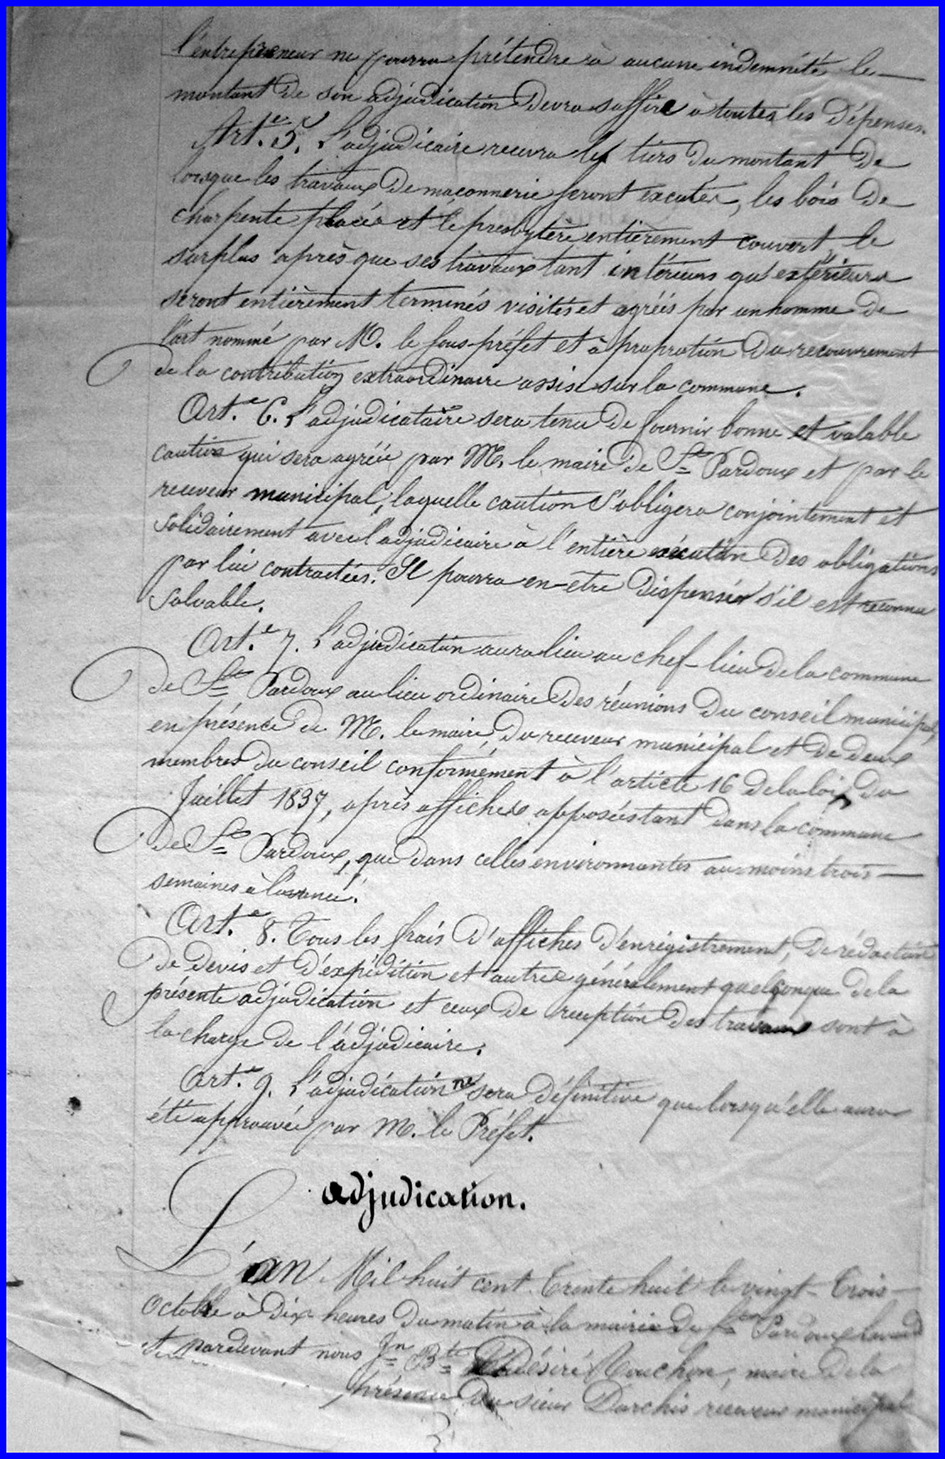 l'entrepreneur ne pourra prétendre à aucune indemnité, le
montant de son adjudication devra suffire à toutes les dépenses.
Art.e 5. L'adjudicaire recevra les tiers du montant de
lorsque les travaux de maçonnerie seront excutés, les bois de
charpente placés et le presbytère entièrement couvert, le
surplus après que ses travaux tant intérieurs qu'extérieurs
seront entièrement terminés visités et agréés par un homme de
l'art nommé par M. le sous-préfet et à proprotion du recouvrement
de la contribution extraordinaire assise sur la commune.
Art.e 6. L'adjudicataire sera tenu de fournir bonne et valable
caution qui sera agréée par M. le maire de St Pardoux et par le
receveur municipal, laquelle caution s'obligera conjointement et
solidairement avec l'adjudicaire à l'entière exécution des obligations
par lui contractées. Il pourra en-etre dispensér s'il est reconnu
solvable.
Art.e 7. L'adjudication aura lieu au chef-lieu de la commune
de St Pardoux au lieu ordinaire des réunions du conseil municipal,
en présence de M. le maire, du receveur municipal et de deux
membres du conseil conformément à l'article 16 de la loi du
Juillet 1837, après affiches apposées tant dans la commune
de St Pardoux, que dans celles environnantes au moins trois
semaines à l'avance.
Art.e 8. Tous les frais d'affiches d'enrégistrement, de rédaction
de devis et d'expédition et autres généralement quelconque de la
présente adjudication et ceux de reception des travaux sont à
la charge de l'adjudicaire.
Art.e 9. L'adjudication ne sera définitive que lorsqu'elle aura
été approuvée par M. le Préfet.
adjudication.
L'an Mil huit cent trente huit le vingt-trois
Octobre à dix heures du matin à la mairie de St Pardoux
et pardevant nous Jn Bte Désiré Mouchon, maire de la
présence du sieur Darchis receveur municipal